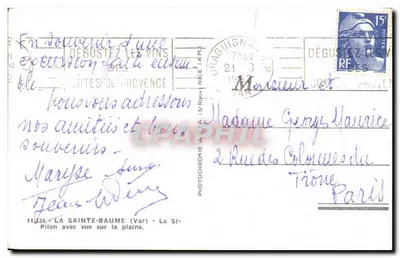 DÉGUSTEZ LES VINS
DES
CÔTES DE PROVENCE
En souvenir d'une
excursion faite ensem-
ble.
Nous vous adressons
nos amitiés et bons
souvenirs.
Maryse
Jean
11.136. - LA SAINTE-BAUME (Var) - Le St-
Pilon avec vue sur la plaine.
PHOTOCHROMIE
NICE (A.M.)
DRAGUIGNAN
21
DÉGUSTEZ LES VINS
DES
15F
RF
Monsieur et
Madame Georges Maurice
2 Rue des Colonnes du
Trône
Paris